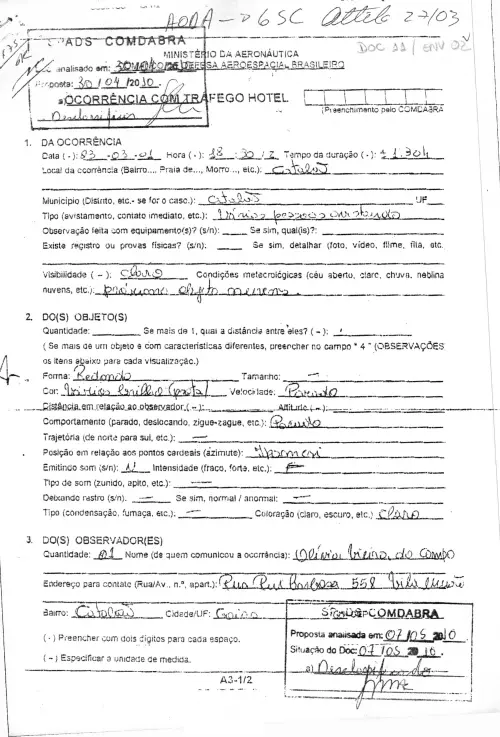 DOC 11 / ENV 02
COMDABRA
MINISTÉRIO DA AERONÁUTICA
analisado em: DEFESA AEROESPACIAL BRASILEIRO
Proposta: 30 / 04 /2010
OCORRÊNCIA COM TRÁFEGO HOTEL
(Preenchimento pelo COMDABRA
1. DA OCORRÊNCIA
Data ( · ): 03 - 03 - 01 Hora ( · ): 18 : 30 / Z Tempo da duração ( · ): ± 1.30h
Local da ocorrência (Bairro..., Praia de..., Morro..., etc.): Catalão
Município (Distrito, etc.- se for o caso.): Catalão UF
Tipo (avistamento, contato imediato, etc.): Várias pessoas avistando
Observação feita com equipamento(s)? (s/n): Se sim, qual(is)?:
Existe registro ou provas físicas? (s/n): Se sim, detalhar (foto, vídeo, filme, fita, etc.
Visibilidade ( ~ ): Claro Condições meteorológicas (céu aberto, claro, chuva, neblina
nuvens, etc.): próximo objeto nuvens.
2. DO(S) OBJETO(S)
Quantidade: Se mais de 1, qual a distância entre eles? ( ~ ):
( Se mais de um objeto e com características diferentes, preencher no campo " 4 " (OBSERVAÇÕES
os itens abaixo para cada visualização.)
Forma: Redondo Tamanho: —
Cor: Vários brilho (prata) Velocidade: Parado
Distância em relação ao observador ( ~ ): Altitude ( ~ ):
Comportamento (parado, deslocando, zigue-zague, etc.): Parado
Trajetória (de norte para sul, etc.): —
Posição em relação aos pontos cardeais (azimute):
Emitindo som (s/n): N Intensidade (fraco, forte, etc.):
Tipo de som (zunido, apito, etc.): —
Deixando rastro (s/n). — Se sim, normal / anormal: —
Tipo (condensação, fumaça, etc.): — Coloração (claro, escuro, etc.) Claro
3. DO(S) OBSERVADOR(ES)
Quantidade: 01 Nome (de quem comunicou a ocorrência): Olivia Vieira do Campo
Endereço para contato (Rua/Av., n.º, apart.): Rua Rui Barbosa 558 Vila
Bairro: Catalão Cidade/UF: Goiás
( · ) Preencher com dois dígitos para cada espaço.
( ~ ) Especificar a unidade de medida.
COMDABRA
Proposta analisada em: 07 / 05 2010
Situação do Doc: 07 / 05 2010.
a) Desclassificado
A3-1/2